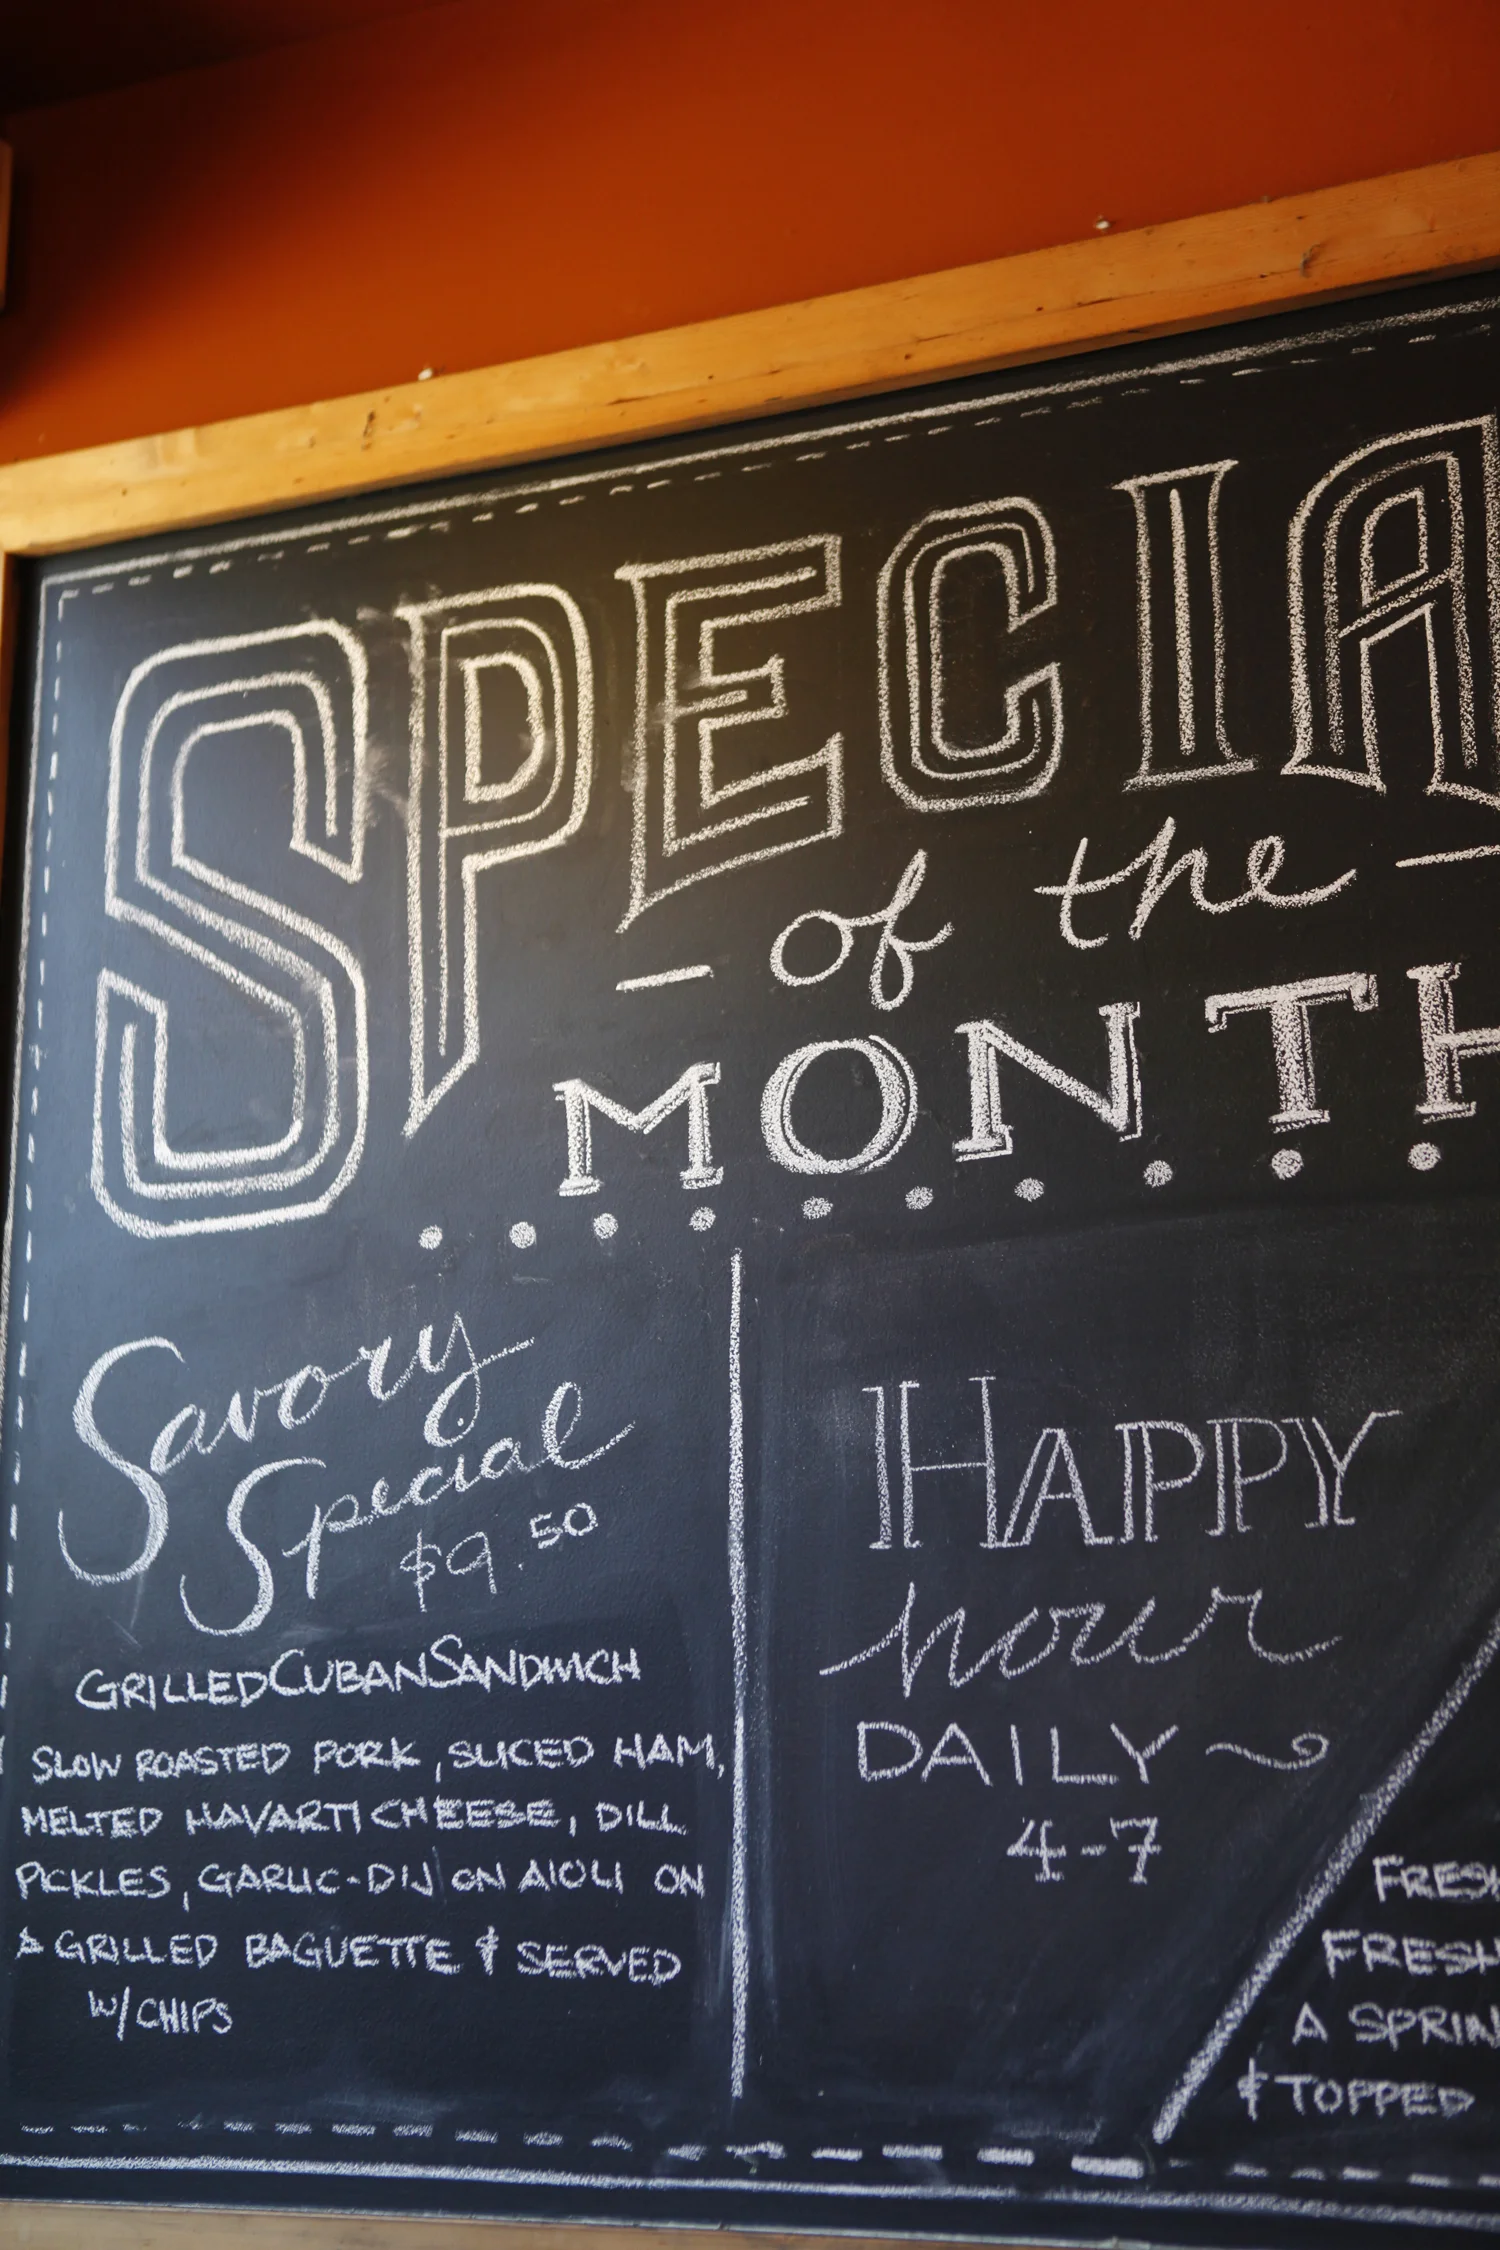 SPECIA
- of the -
MONTH
Savory
Special
$9.50
GRILLED CUBAN SANDWICH
SLOW ROASTED PORK, SLICED HAM,
MELTED HAVARTI CHEESE, DILL
PICKLES, GARLIC-DIJON AIOLI ON
A GRILLED BAGUETTE & SERVED
W/CHIPS
HAPPY
hour
DAILY
4-7
FRESH
FRESH
A SPRIN
& TOPPED